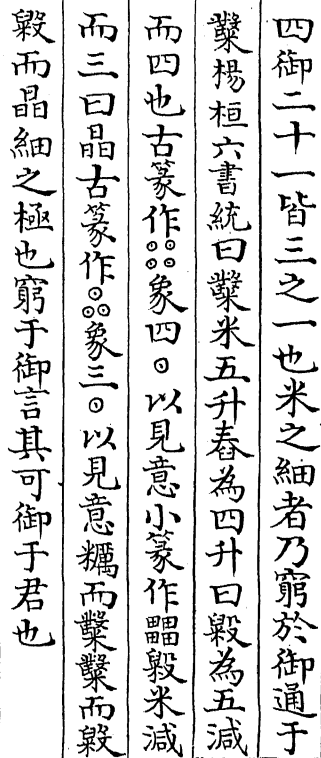 四御二十一皆三之一也米之細者乃窮於御通于
糳楊桓六書統曰糳米五升舂為四升曰毇為五減
而四也古篆作⊙⊙⊙⊙象四⊙以見意小篆作畾毇米減
而三曰晶古篆作⊙⊙⊙象三⊙以見意糲而糳糳而毇
毇而晶細之極也窮于御言其可御于君也